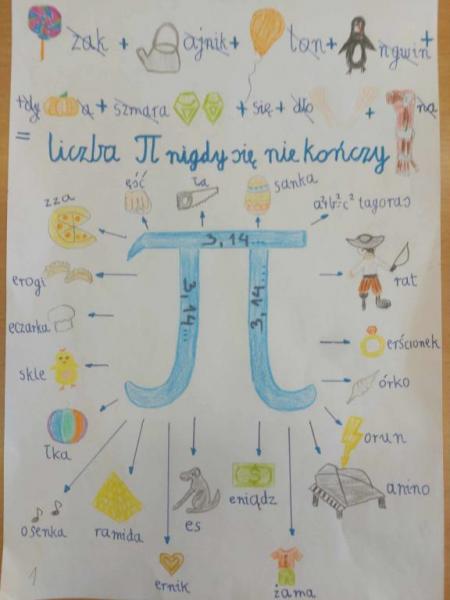 żak + ajnik + lon + ngwin +
+ dy a + szmara + się + dło + na
= liczba π nigdy się nie kończy
zza ęść ła sanka a²+b²=c² tagoras
3,14...
3,14... 3,14...
erogi rat
eczarka erścionek
skle órko
łka orun
osenka ramida es eniądz anino
ernik żama
1